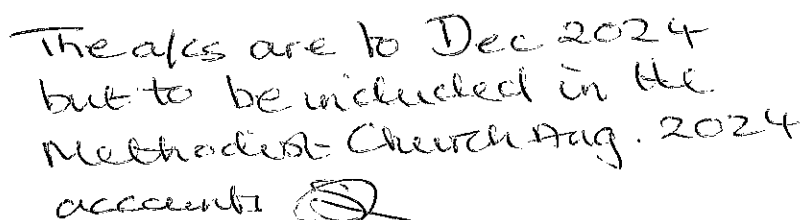 The a/cs are to Dec 2024
but to be included in the
Methodist Church Aug. 2024
accounts